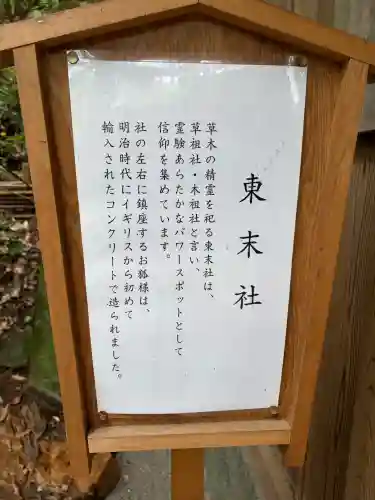 東末社
草木の精霊を祀る東末社は、
草祖社・木祖社と言い、
霊験あらたかなパワースポットとして
信仰を集めています。
社の左右に鎮座するお狐様は、
明治時代にイギリスから初めて
輸入されたコンクリートで造られました。